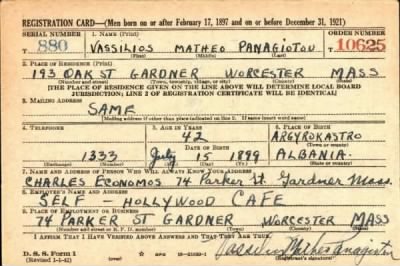 REGISTRATION CARD—(Men born on or after February 17, 1897 and on or before December 31, 1921)
SERIAL NUMBER 1. NAME (Print) ORDER NUMBER
T 880 VASSILIOS MATHEO PANAGIOTOU T 10625
(First) (Middle) (Last)
2. PLACE OF RESIDENCE (Print)
193 OAK ST GARDNER WORCESTER MASS
(Number and street) (Town, township, village, or city) (County) (State)
[THE PLACE OF RESIDENCE GIVEN ON THE LINE ABOVE WILL DETERMINE LOCAL BOARD
JURISDICTION; LINE 2 OF REGISTRATION CERTIFICATE WILL BE IDENTICAL]
3. MAILING ADDRESS
SAME
[Mailing address if other than place indicated on line 2. If same insert word same]
4. TELEPHONE 5. AGE IN YEARS 6. PLACE OF BIRTH
42 ARGYROKASTRO
DATE OF BIRTH (Town or county)
1333 July 15 1899 ALBANIA.
(Exchange) (Number) (Mo.) (Day) (Yr.) (State or country)
7. NAME AND ADDRESS OF PERSON WHO WILL ALWAYS KNOW YOUR ADDRESS
CHARLES ECONOMOS 74 Parker St. Gardner Mass.
8. EMPLOYER'S NAME AND ADDRESS
SELF - HOLLYWOOD CAFE
9. PLACE OF EMPLOYMENT OR BUSINESS
74 PARKER ST GARDNER WORCESTER MASS
(Number and street or R. F. D. number) (Town) (County) (State)
I AFFIRM THAT I HAVE VERIFIED ABOVE ANSWERS AND THAT THEY ARE TRUE.
D. S. S. Form 1
(Revised 1-1-42) (over) (Registrant's signature)